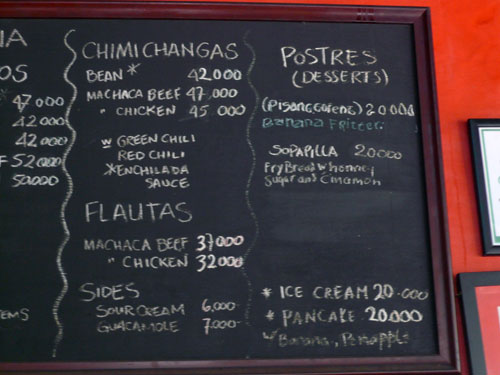 IA
OS
47000
42000
42000
F 52000
50000
EMS
CHIMICHANGAS
BEAN * 42000
MACHACA BEEF 47,000
" CHICKEN 45000
w GREEN CHILI
RED CHILI
*ENCHILADA
SAUCE
FLAUTAS
MACHACA BEEF 37000
" CHICKEN 32000
SIDES
SOUR CREAM 6,000
GUACAMOLE 7,000
POSTRES
(DESSERTS)
(Pisang Goreng) 20000
Banana Fritter
SOPAPILLA 20000
Fry Bread w honney
Sugar and Cinamon
* ICE CREAM 20.000
* PANCAKE 20.000
w/ Banana, Pineapple